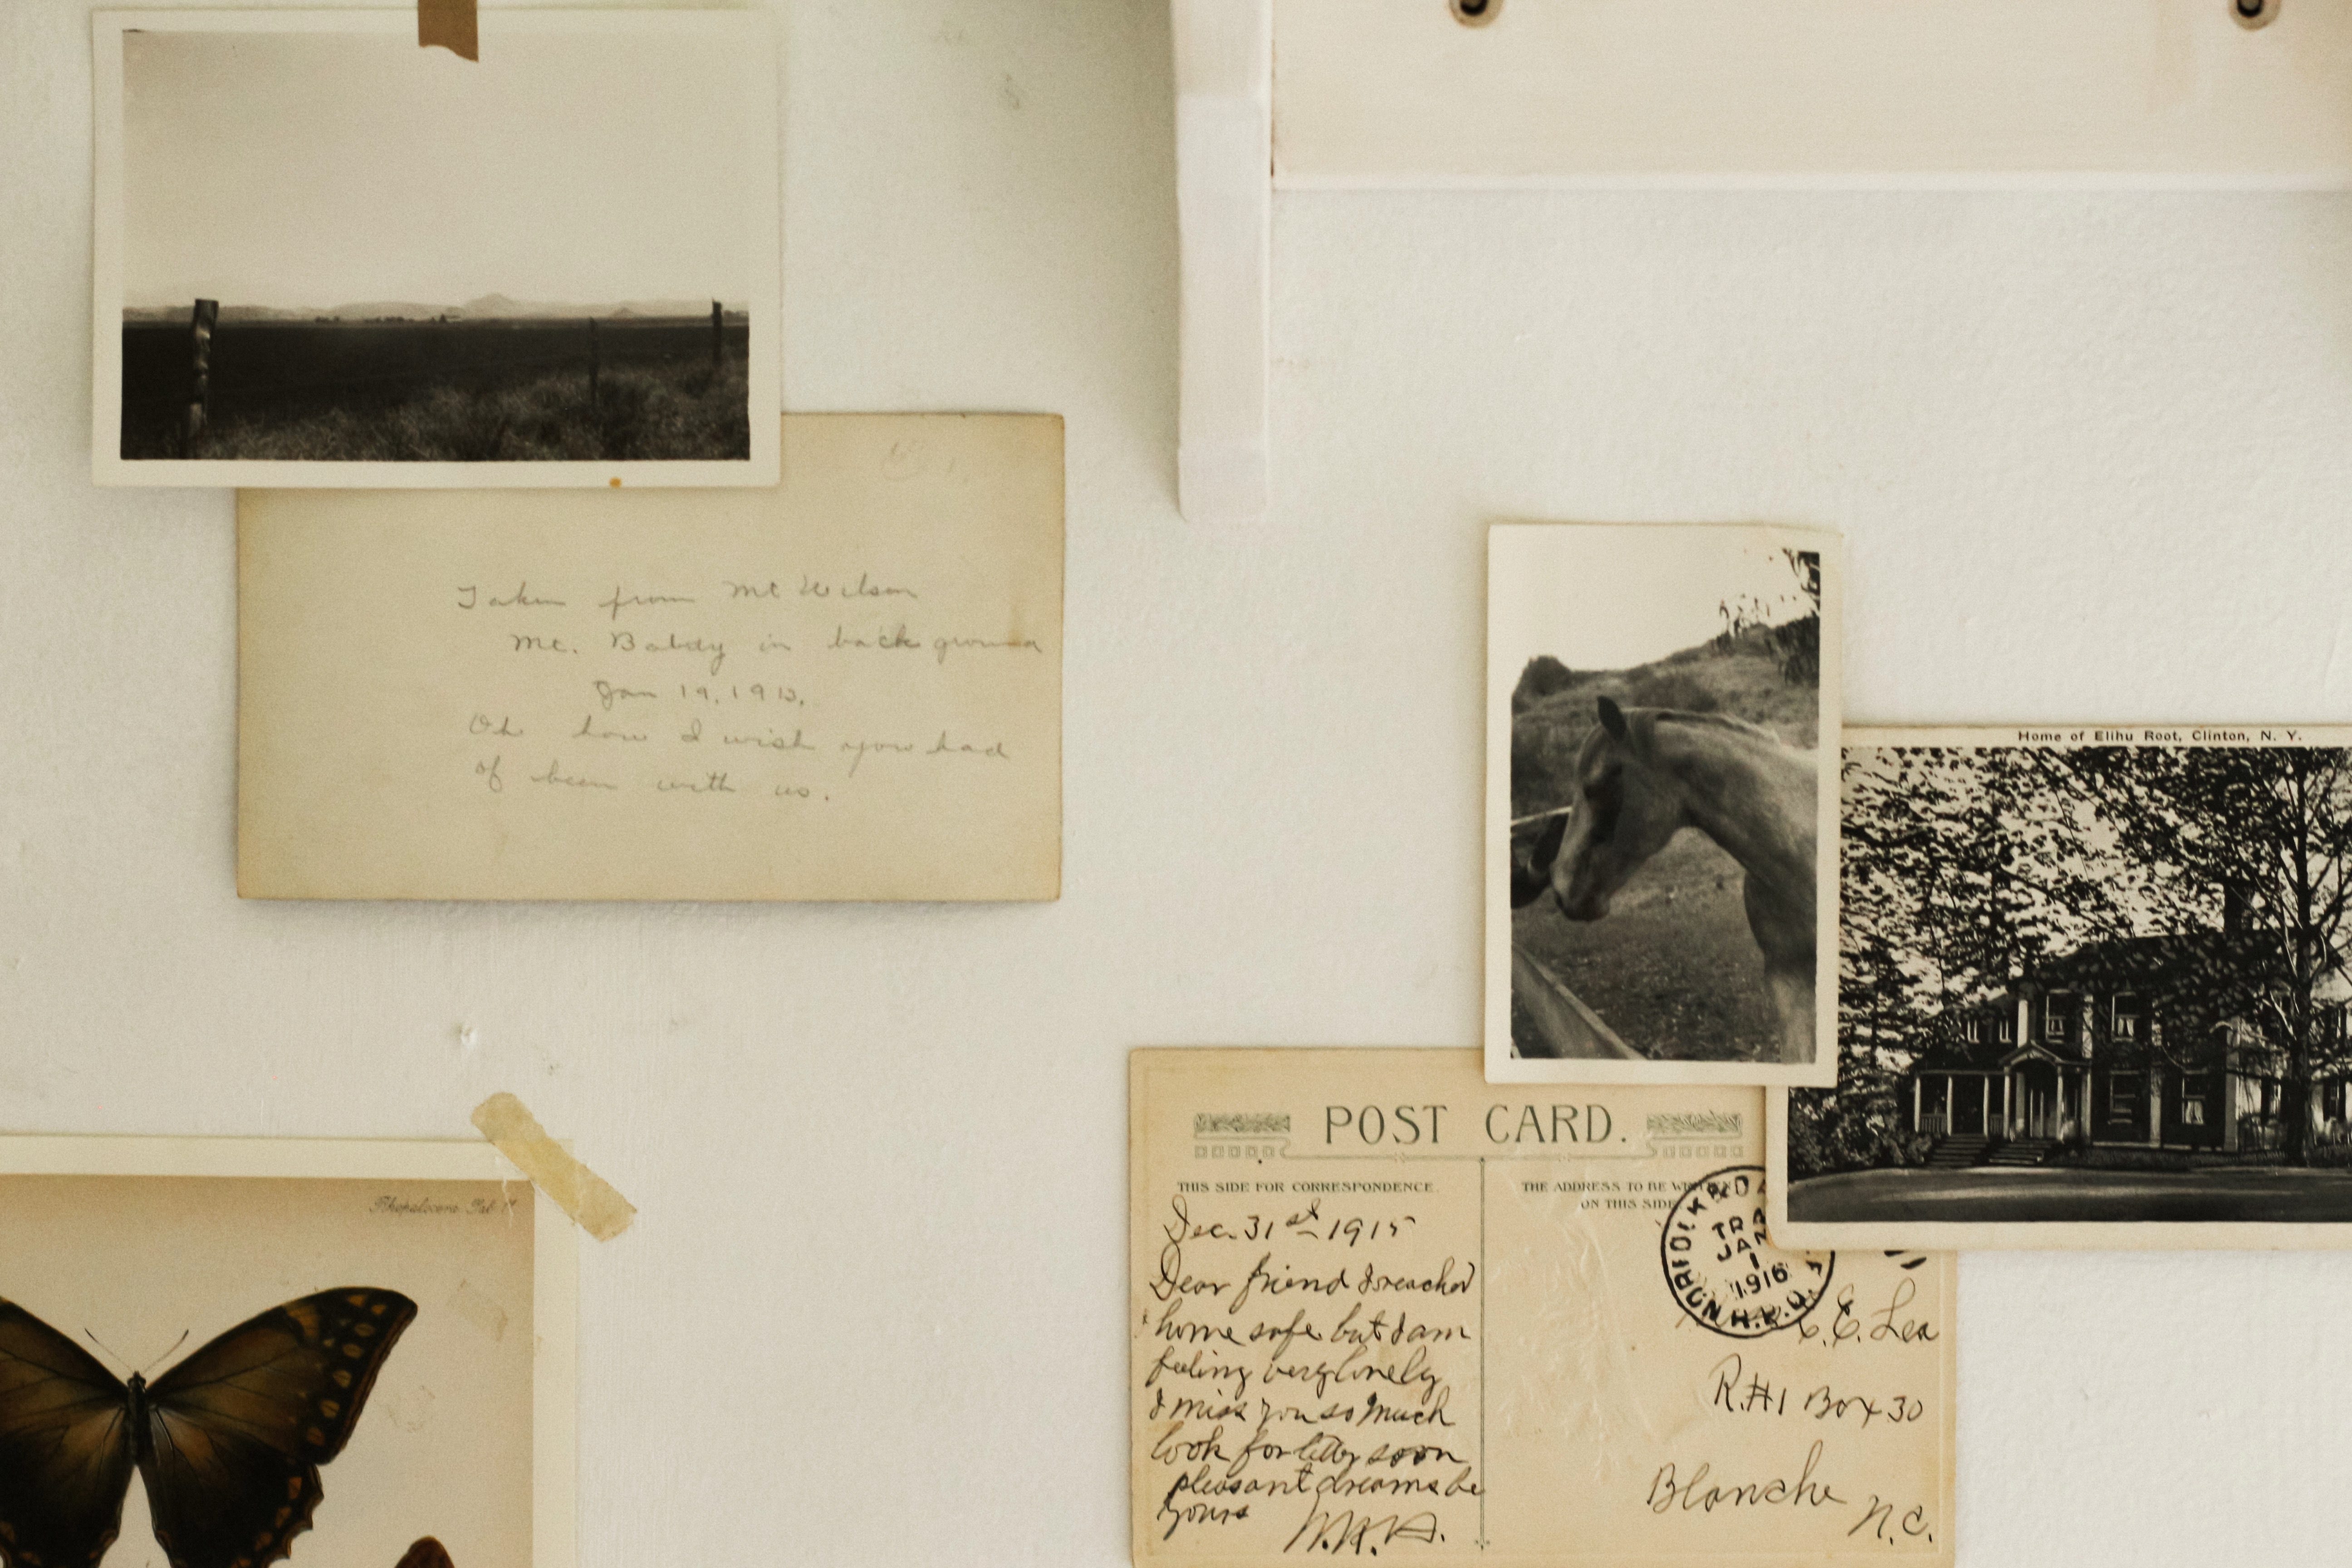 Taken from Mt Wilson
Mt. Baldy in back ground
Jan 19, 1913.
Oh how I wish you had
of been with us.
Home of Elihu Root, Clinton, N. Y.
POST CARD.
THIS SIDE FOR CORRESPONDENCE.
Dec. 31st 1915
Dear friend I reached
home safe but I am
feeling very lonely
I miss you so much
look for letter soon
pleasant dreams be
yours
THE ADDRESS TO BE
ON THIS SIDE
JAN
1
1916
R.P.O.
C. E. Lea
R.#1 Box 30
Blanche
N.C.
Rhopalocera Tab